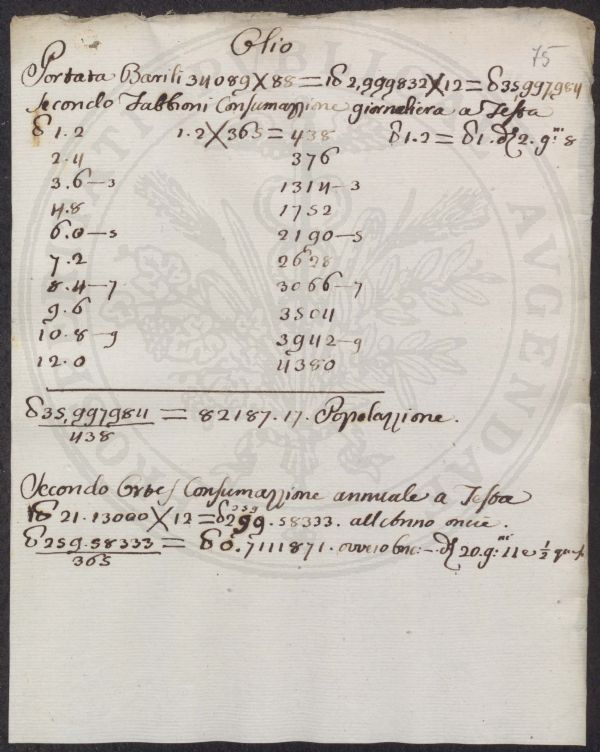 Olio
75
Portata Barili 34089 X 88 = ℔ 2,999832 X 12 = ℥ 35,997984
Secondo Fabbroni Consumazzione giornaliera a Testa
℥ 1.2 1.2 X 365 = 438 ℥ 1.2 = ℥ 1. 2. g.ni 8
2.4 376
3.6-3 1314-3
4.8 1752
6.0-5 2190-5
7.2 2628
8.4-7 3066-7
9.6 3504
10.8-9 3942-9
12.0 4380
℥ 35,997984 = 82187.17. Popolazzione.
438
Secondo Consumazzione annuale a Testa
℔ 21.13000 X 12 = ℥ 259.58333. all'Anno oncie.
℥ 259.58333 = ℥ 0.7111871. ovvero 20. g.ni 11 e 1/2
365
PUBLICAE AVGENDAE